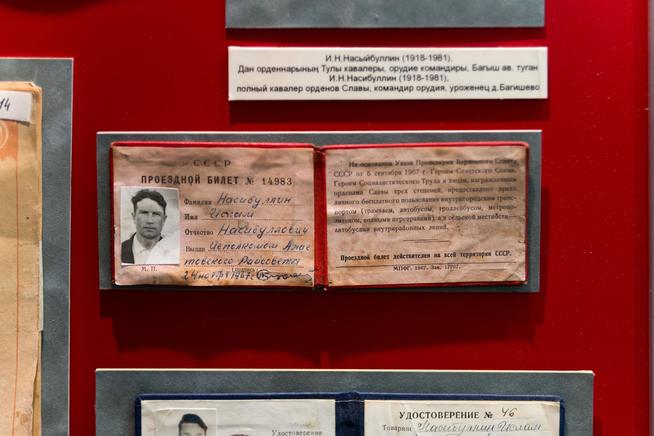 14
И.Н.Насыйбуллин (1918-1981),
Дан орденнарының Тулы кавалеры, орудие командиры, Багыш ав. туган
И.Н.Насибуллин (1918-1981),
полный кавалер орденов Славы, командир орудия, уроженец д.Багишево
СССР
ПРОЕЗДНОЙ БИЛЕТ № 14983
Фамилия Насибуллин
Имя
Отчество Насибуллович
Выдан Исполкомом Апас
товского Райсовета
24 ноября 1967 г.
М. П.
На основании Указа Президиума Верховного Совета
СССР от 6 сентября 1967 г. Героям Советского Союза,
Героям Социалистического Труда и лицам, награжденным
орденами Славы трех степеней, предоставлено право
личного бесплатного пользования внутригородским транс-
портом (трамваем, автобусом, троллейбусом, метропо-
литеном, водными переправами), а в сельской местности
автобусами внутрирайонных линий.
Проездной билет действителен на всей территории СССР.
МПФГ. 1967. Зак.
УДОСТОВЕРЕНИЕ № 46
Удостоверение
Товарищ Насибуллин